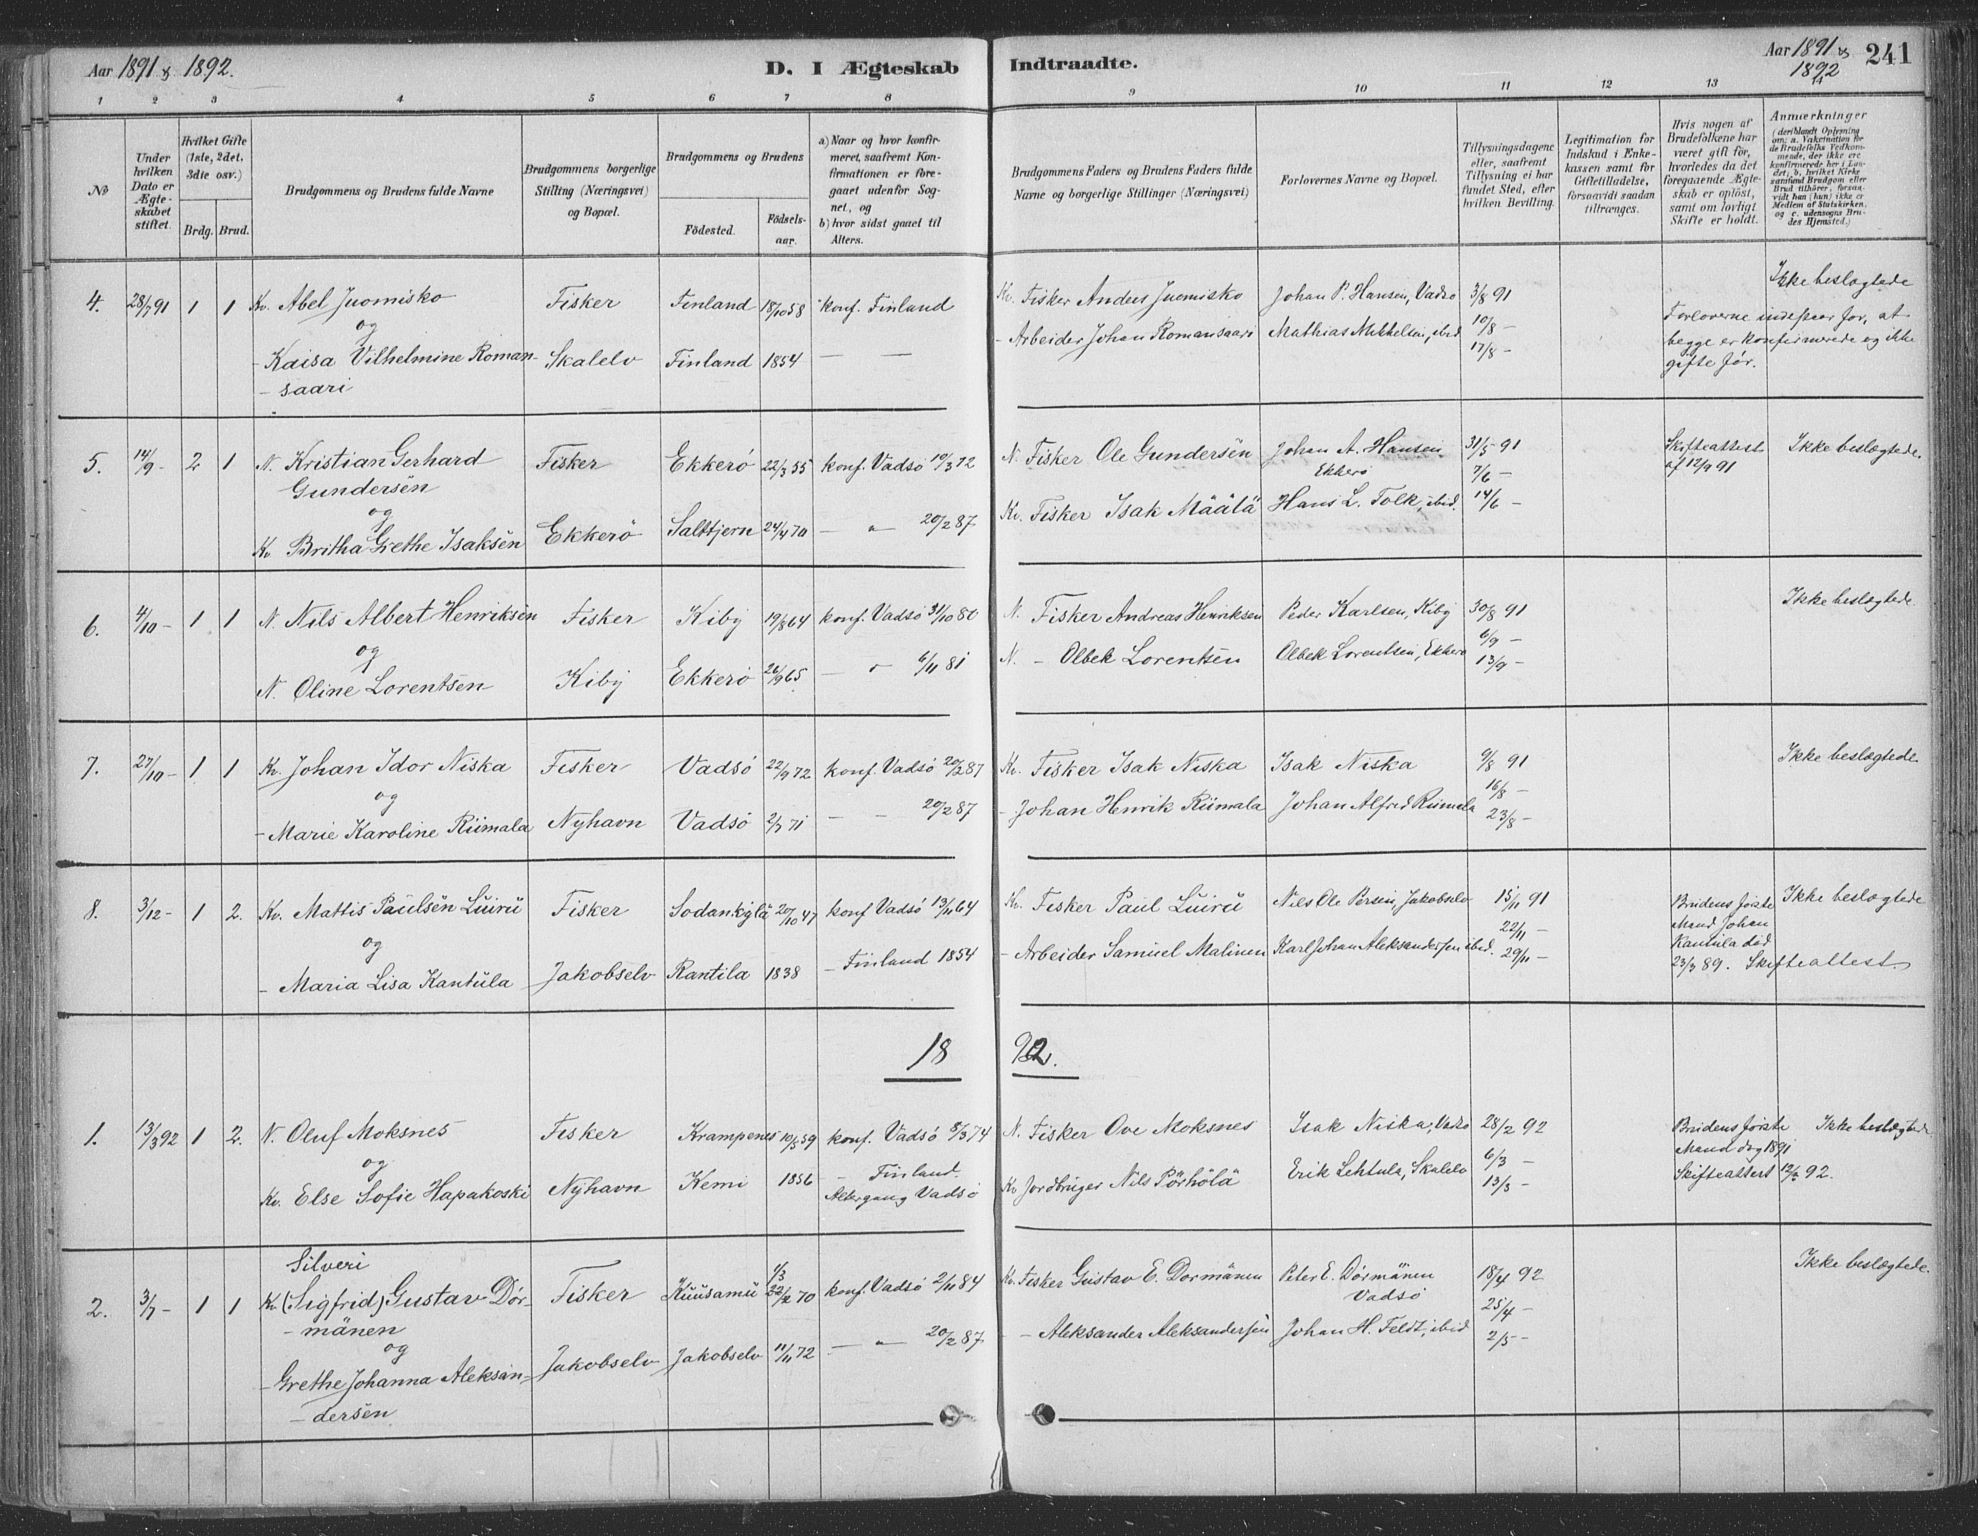 Aar 1891 & 1892.
D. I Ægteskab Indtraadte.
Aar 1891 og 1892
241
1 2 3 4 5 6 7 8 9 10 11 12 13 14
No
Under hvilken Dato er Ægteskabet stiftet.
Hvilket Gifte (1ste, 2det, 3die osv.)
Brdg. Brud.
Brudgommens og Brudens fulde Navne
Brudgommens borgerlige Stilling (Næringsvei) og Bopæl.
Brudgommens og Brudens
Födested. Födselsaar.
a) Naar og hvor konfirmeret, saafremt Konfirmationen er foregaaet udenfor Sognet, og
b) hvor sidst gaaet til Alters.
Brudgommens Faders og Brudens Faders fulde Navne og borgerlige Stillinger (Næringsvei)
Forlovernes Navne og Bopæl.
Tillysningsdagene eller, saafremt Tillysning ei har fundet Sted, efter hvilken Bevilling.
Legitimation for Indskud i Enkekassen samt for Giftetilladelse, forsaavidt saadan tiltrænges.
Hvis nogen af Brudefolkene har været gift før, hvorledes da det foregaaende Ægteskab er opløst, samt om lovligt Skifte er holdt.
Anmærkninger
(deriblandt Oplysning om: a. Vakcination for de Brudefolks Vedkommende, der ikke ere konfirmerede her i Landet; b. hvilket Kirkesamfund Brudgom eller Brud tilhörer, forsaavidt han (hun) ikke er Medlem af Statskirken, og c. udensogns Brudes Hjemsted.)
4. 28/7 91 1 1 Kv. Abel Juomisko Fisker Finland 18/10 58 konf. Finland Kv. Fisker Anders Juomisko Johan P. Hansen, Vadsø 3/8 91 Ikke beslægtede
og
- Kaisa Vilhelmine Roman- Skalelv Finland 1854 — — - Arbeider Johan Romansaari Mathias Mikkelsen, ibid 10/8 —
- saari 17/8 -
Forloverne indestaar for, at begge er konfirmerede og ikke gifte før.
5. 14/9 - 2 1 N. Kristian Gerhard Fisker Ekkerø 22/3 55 konf. Vadsø 10/3 72 N. Fisker Ole Gundersen Johan A. Hansen, 31/5 91 Skifteattest Ikke beslægtede.
Gundersen Ekkerø 7/6 - af 12/9 91
og
Kv Britha Grethe Isaksen Ekkerø Saltkjern 24/4 70 — " 20/2 87 Kv. Fisker Isak Määlä Hans L. Folk, ibid. 14/6 -
6. 4/10 - 1 1 N. Nils Albert Henriksen Fisker Kiby 19/8 64 konf. Vadsø 31/10 80 N. Fisker Andreas Henriksen Peder Karlsen, Kiby 30/8 91 Ikke beslægtede
og 6/9 -
N. Oline Lorentsen Kiby Ekkerø 26/9 65 — " 6/11 81 N. - Olbek Lorentsen Olbek Lorentsen, Ekkerø 13/9 -
7. 27/10 - 1 1 Kv. Johan Idor Niska Fisker Vadsø 22/9 72 konf. Vadsø 20/2 87 Kv. Fisker Isak Niska Isak Niska 9/8 91 Ikke beslægtede
og 16/8 -
- Marie Karoline Riimala Nyhavn Vadsø 2/7 71 — — 20/2 87 - Johan Henrik Riimala Johan Alfred Riimala 23/8 -
8. 3/12 - 1 2. Kv. Mattis Paulsen Luiru Fisker Sodankylä 20/10 47 konf Vadsø 13/11 64 Kv. Fisker Paul Luiru Nils Ole Persen, Jakobselv 15/11 91 Ikke beslægtede
og 22/11 -
- Maria Lisa Kantula Jakobselv Rantila 1838 - Finland 1854 - Arbeider Samuel Malinen Karl Johan Aleksandersen ibid. 29/11 -
Brudens første Mand Johan Kantula død 23/3 89. Skifteattest.
18 92.
1. 13/3 92 1 2. N. Oluf Moksnes Fisker Krampenes 10/5 59 konf. Vadsø 8/3 74 N. Fisker Ove Moksnes Isak Niska, Vadsø 28/2 92 Ikke beslægtede
og - Finland. 6/3 -
Kv. Else Sofie Hapakoski Nyhavn Kemi 1856 Altergang Vadsø Kv Jordbruger Nils Pörhölä Erik Lehtula, Skalelv 13/3 -
Brudens første Mand dog 1891 Skifteattest 12/3 92.
2. 3/7 - 1 1 Silveri
Kv. (Sigfrid) Gustav Dör- Fisker Kuusamo 1/3 22/2 70 konf. Vadsø 2/11 84 Kv. Fisker Gustav E. Dormänen Peter E. Dörmänen 18/4 92 Ikke beslægtede.
- mänen Vadsø 25/4 -
og
- Grethe Johanna Aleksan- Jakobselv Jakobselv 11/11 72 — " 20/2 87 - Aleksander Aleksandersen Johan H. Feldt, ibid 2/5 -
- dersen